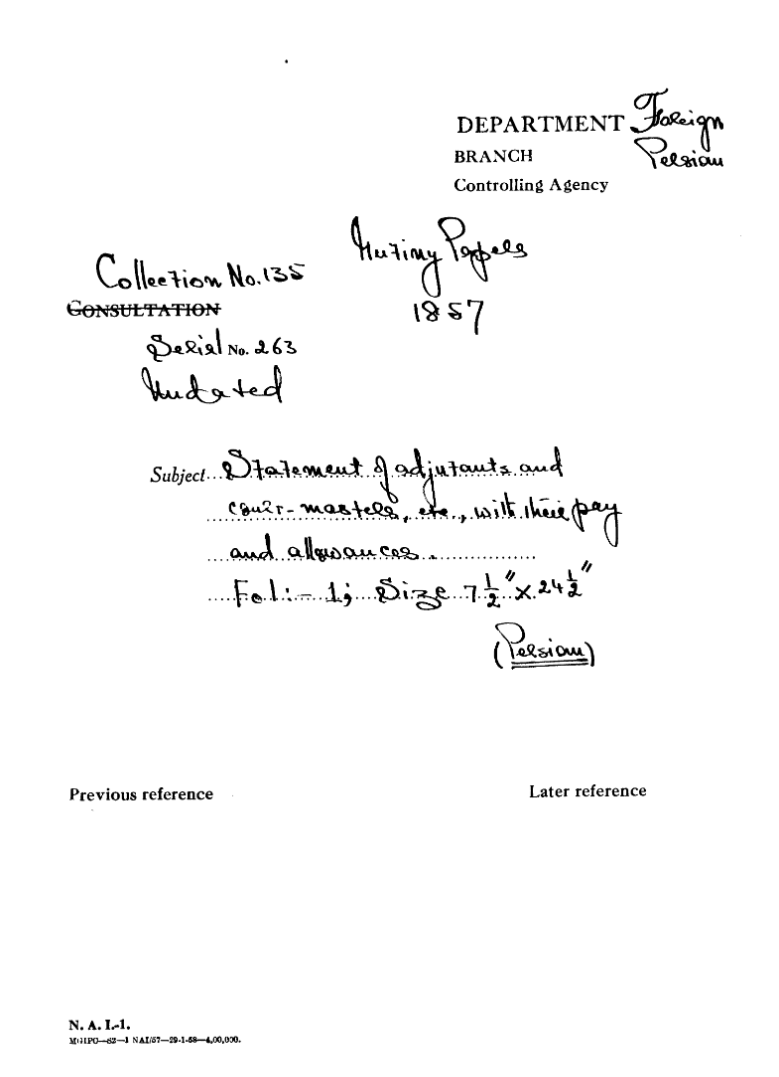 DEPARTMENT Foreign
BRANCH Persian
Controlling Agency
Mutiny Papers
1857
Collection No. 135
CONSULTATION
Serial No. 263
Undated
Subject Statement of adjutants and
court-masters, etc., with their pay
and allowances.
Fol:- 1; Size 7 1/2" x 24 1/2"
(Persian)
Previous reference
Later reference
N. A. I.-1.
MGIPC—S2—1 NAI/57—29-1-58—4,00,000.